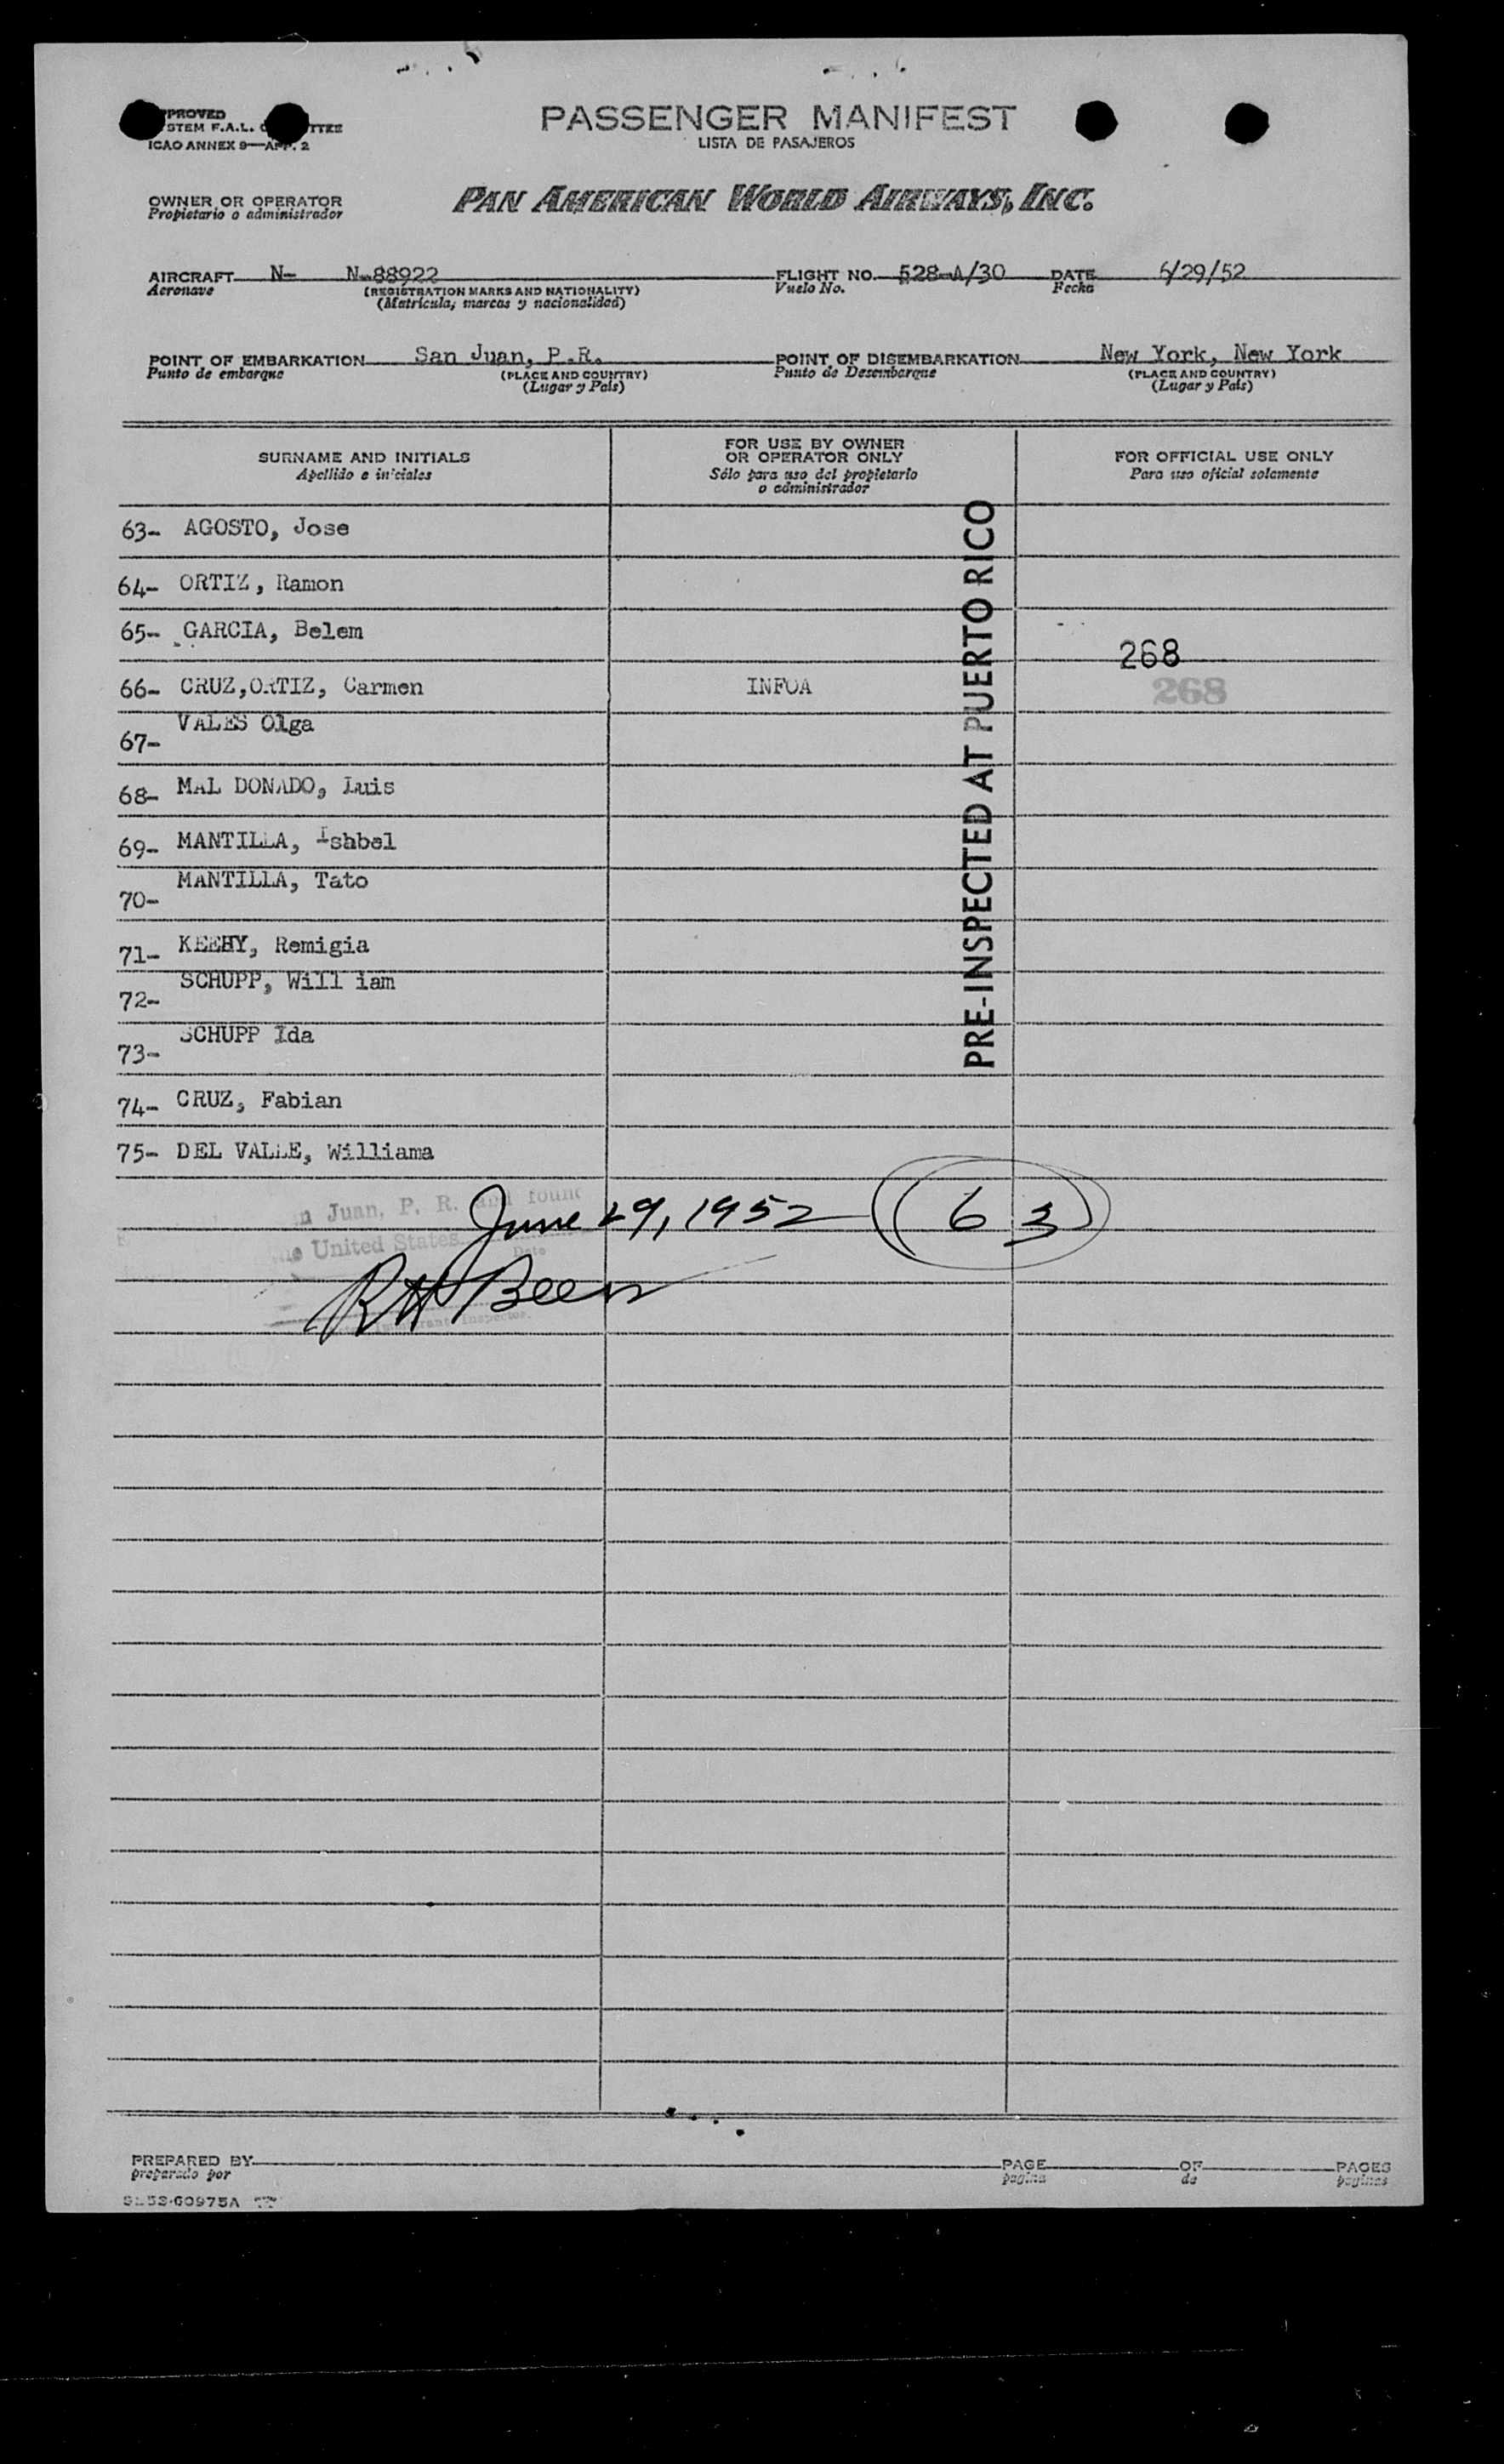 PASSENGER MANIFEST
LISTA DE PASAJEROS
PROVED
STEM F.A.L.
ICAO ANNEX 9—APP. 2
OWNER OR OPERATOR
Propietario o administrador
PAN AMERICAN WORLD AIRWAYS, INC.
AIRCRAFT N- N-88922 FLIGHT NO. 528-A/30 DATE 6/29/52
Aeronave (REGISTRATION MARKS AND NATIONALITY) Vuelo No. Fecha
(Matrícula; marcas y nacionalidad)
POINT OF EMBARKATION San Juan, P.R. POINT OF DISEMBARKATION New York, New York
Punto de embarque (PLACE AND COUNTRY) Punto de Desembarque (PLACE AND COUNTRY)
(Lugar y País) (Lugar y País)
SURNAME AND INITIALS
Apellido e iniciales
FOR USE BY OWNER
OR OPERATOR ONLY
Sólo para uso del propietario
o administrador
FOR OFFICIAL USE ONLY
Para uso oficial solamente
PRE-INSPECTED AT PUERTO RICO
63- AGOSTO, Jose
64- ORTIZ, Ramon
65- GARCIA, Belem
268
66- CRUZ,ORTIZ, Carmen INFOA 268
67- VALES Olga
68- MAL DONADO, Luis
69- MANTILLA, Ishbel
70- MANTILLA, Tato
71- KEEHY, Remigia
72- SCHUPP, Will iam
73- SCHUPP Ida
74- CRUZ, Fabian
75- DEL VALLE, Williama
n Juan, P. R. and found
June 29, 1952 (63)
United States
Date
RH Been
Immigrant Inspector.
PREPARED BY PAGE OF PAGES
preparado por pagina de paginas